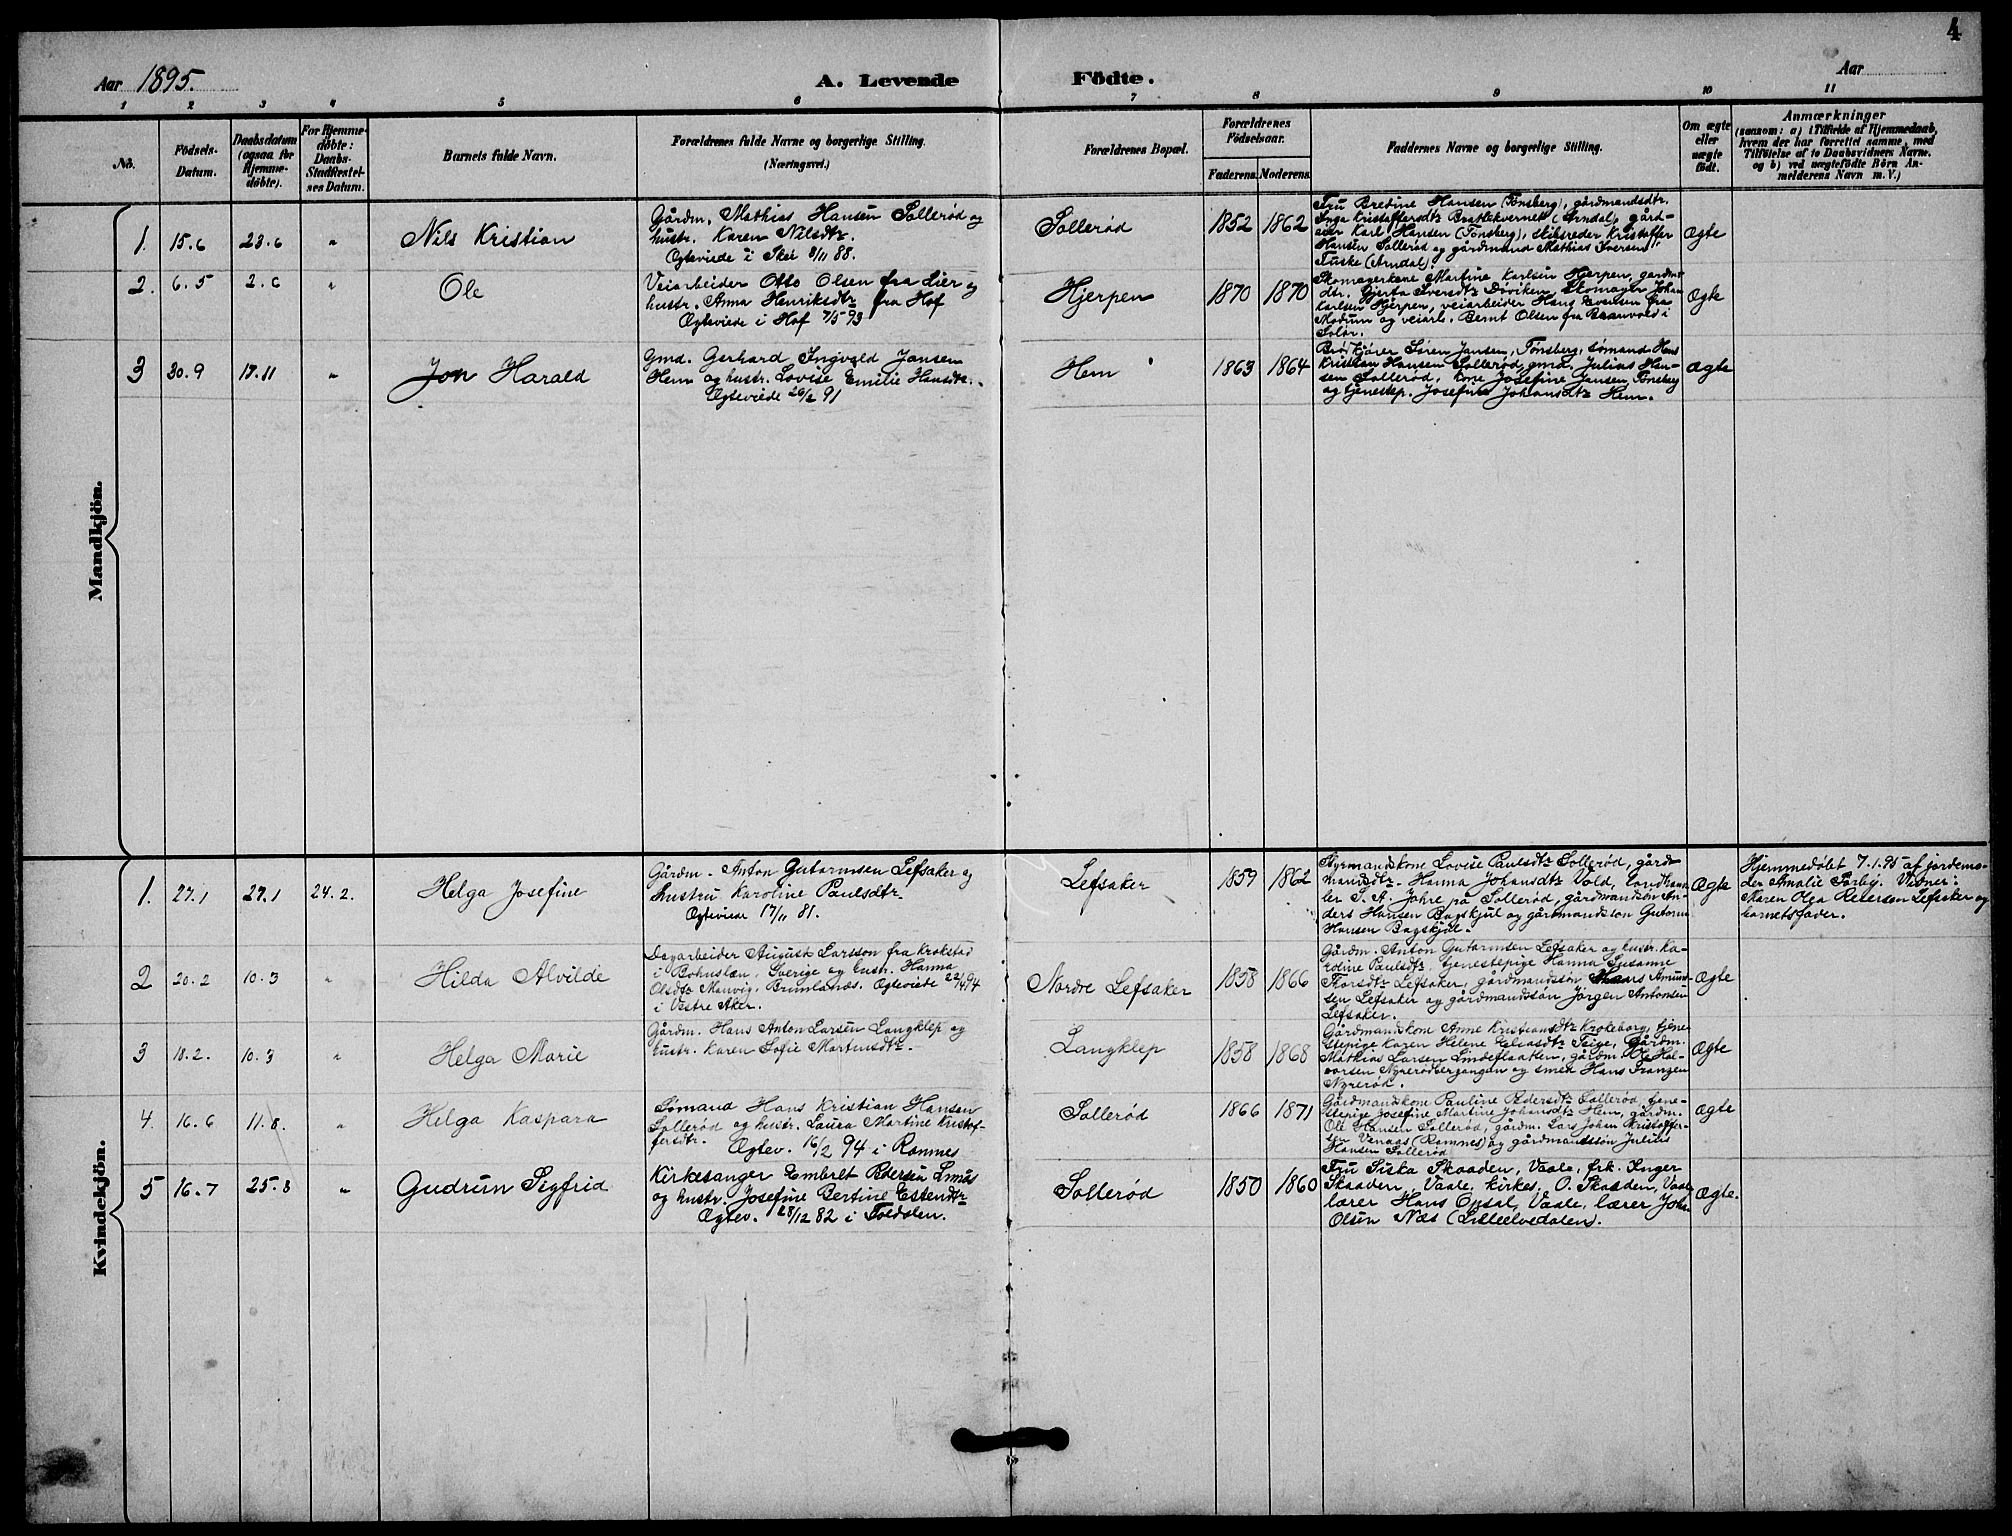 4
Aar 1895.
A. Levende Födte.
Aar
1 2 3 4 5 6 7 8 9 10 11
No.
Födsels-
Datum.
Daabsdatum
(ogsaa for
Hjemme-
döbte).
For Hjemme-
döbte:
Daabs-
Stadfæstel-
ses Datum.
Barnets fulde Navn.
Forældrenes fulde Navne og borgerlige Stilling.
(Næringsvei.)
Forældrenes Bopæl.
Forældrenes
Födselsaar.
Faderens. Moderens.
Faddernes Navne og borgerlige Stilling.
Om ægte
eller
uægte
födt.
Anmærkninger
(saasom: a) i Tilfælde af Hjemmedaab,
hvem der har forrettet samme, med
Tilföielse af to Daabsvidners Navne,
og b) ved uægtefödte Börn An-
melderens Navn m. V.)
Mandkjön.
1. 15.6 23.6 " Nils Kristian
Gårdm. Mathias Hansen Sollerød og
hustr. Karen Nilsdtr.
Ægteviede i Sker 8/11 88.
Sollerød 1852 1862
Fru Bredine Hansen (Tønsberg), gårdmandsdtr.
Inga Kristoffersdtr Brattekvernet (Arndal), gård-
eier Karl Hansen (Tønsberg), skibsreder Kristoffer
Hansen Sollerød og gårdmand Mathias Iversen
Tuske (Arndal).
Ægte
2. 6.5 2.6 " Ole
Veiarbeider Otto Olsen fra Lier og
hustr. Anna Henriksdtr fra Hof
Ægteviede i Hof 7/5 93
Hjerpen 1870 1870
Skomagerkone Martine Karlsen Hjerpen, gårdm-
dtr. Gjerta Iversdtr Døviken, Skomager Johan
Karlsen Hjerpen, veiarbeider Hans Evensen fra
Modum og veiarb. Bernt Olsen fra Branvold i
Solør.
Ægte
3 30.9 17.11 " Jon Harald
Gmd. Gerhard Ingvald Jansen
Hem og hustr. Lovise Emilie Hansdtr.
Ægteviede 26/2 91
Hem 1863 1864
Brødkjører Søren Jansen, Tønsberg, sømand Hans
Kristian Hansen Sollerød, gmd. Julius Han-
sen Sollerød, kone Josefine Jansen, Tønsberg
og tjenestep. Josefine Johansdtr Hem.
Ægte
Kvindekjön.
1. 27.1 27.1 24.2. Helga Josefine
Gårdm. Anton Gutormsen Lefsaker og
hustru Karoline Paulsdtr.
Ægteviede 17/11 81.
Lefsaker 1859 1862
Styrmandskone Lovise Paulsdtr Sollerød, gård
mandsdtr. Hanna Johansdtr Vold, landhand-
ler S. A. Jahre på Sollerød, gårdmandsøn An-
ders Hansen Bagskjul og gårdmandsøn Gutorm
Hansen Bagskjul.
Ægte
Hjemmedøbt 7.1.95 af jordemo-
der Amalie Sørby. Vidner:
Maren Olea Petersen Lefsaker og
barnets faver.
2 20.2 10.3 " Hilda Alvilde
Dagarbeider August Larsson fra Krokstad
i Bohuslæn, Sverige og hustr. Hanna
Olsdtr Manvig, Brunlanæs. Ægteviede 22/4 94
i Vestre Aker.
Nordre Lefsaker 1858 1866
Gårdm. Anton Gutormsen Lefsaker og hustr. Ka-
roline Paulsdtr, tjenestepige Hanna Susanne
Thorsdtr Lefsaker, gårdmandsøn Hans Amund-
sen Lefsaker og gårdmandsøn Jørgen Antonsen
Lefsaker.
Ægte
3 18.2. 10.3 " Helga Marie
Gårdm. Hans Anton Larsen Langklep og
hustr. Karen Sofie Martinsdtr.
Langklep 1858 1868
Gårdmandskone Anne Kristiansdtr Krokeborg, tjene-
stepige Karen Helene Eliasdtr Teige, Gårdm.
Mathias Larsen Lindeflaaten, gårdm. Ole Hal-
vorsen Nyrerødbergangan og smed Hans Franzen
Nyrerød.
Ægte
4. 16.6 11.8. " Helga Kaspara
Sømand Hans Kristian Hansen
Sollerød og hustr. Laura Martine Kristof-
fersdtr. Ægtev. 16/2 94 i Ramnes
Sollerød 1866 1871
Gårdmandskone Pauline Pedersdtr Sollerød, tjene-
stepige Josefine Martine Johansdtr Hem, gårdm.
Ole Hansen Sollerød, gårdm. Lars Johan Kristoffer-
sen Venaas (Ramnes) og gårdmandsøn Julius
Hansen Sollerød
Ægte
5 16.7 25.8 " Gudrun Sigfrid
Kirkesanger Embret Pedersen Lunås
og hustr. Josefine Bertine Estendtr
Ægtev. 28/12 82 i Foldalen.
Sollerød 1850 1860
Fru Siska Skaaden, Vaale, frk. Inger
Skaaden, Vaale, kirkes. O. Skaaden, Vaale
lærer Hans Opsal, Vaale, lærer Johan
Olsen Næs (Lilleelvedalen).
Ægte.